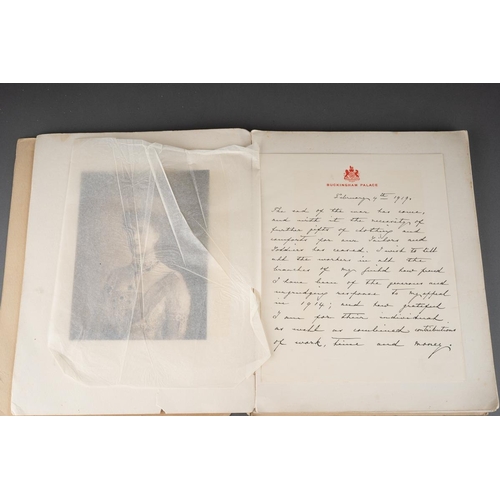 BUCKINGHAM PALACE
February 7th 1919.
The end of the war has come,
and with it the necessity of
further gifts of clothing and
comforts for our Sailors and
Soldiers has ceased. I wish to tell
all the workers in all the
branches of my guild how proud
I have been of the generous and
ungrudging response to my appeal
in 1914; and how grateful
I am for their individual
as well as combined contributions
of work, time and money.